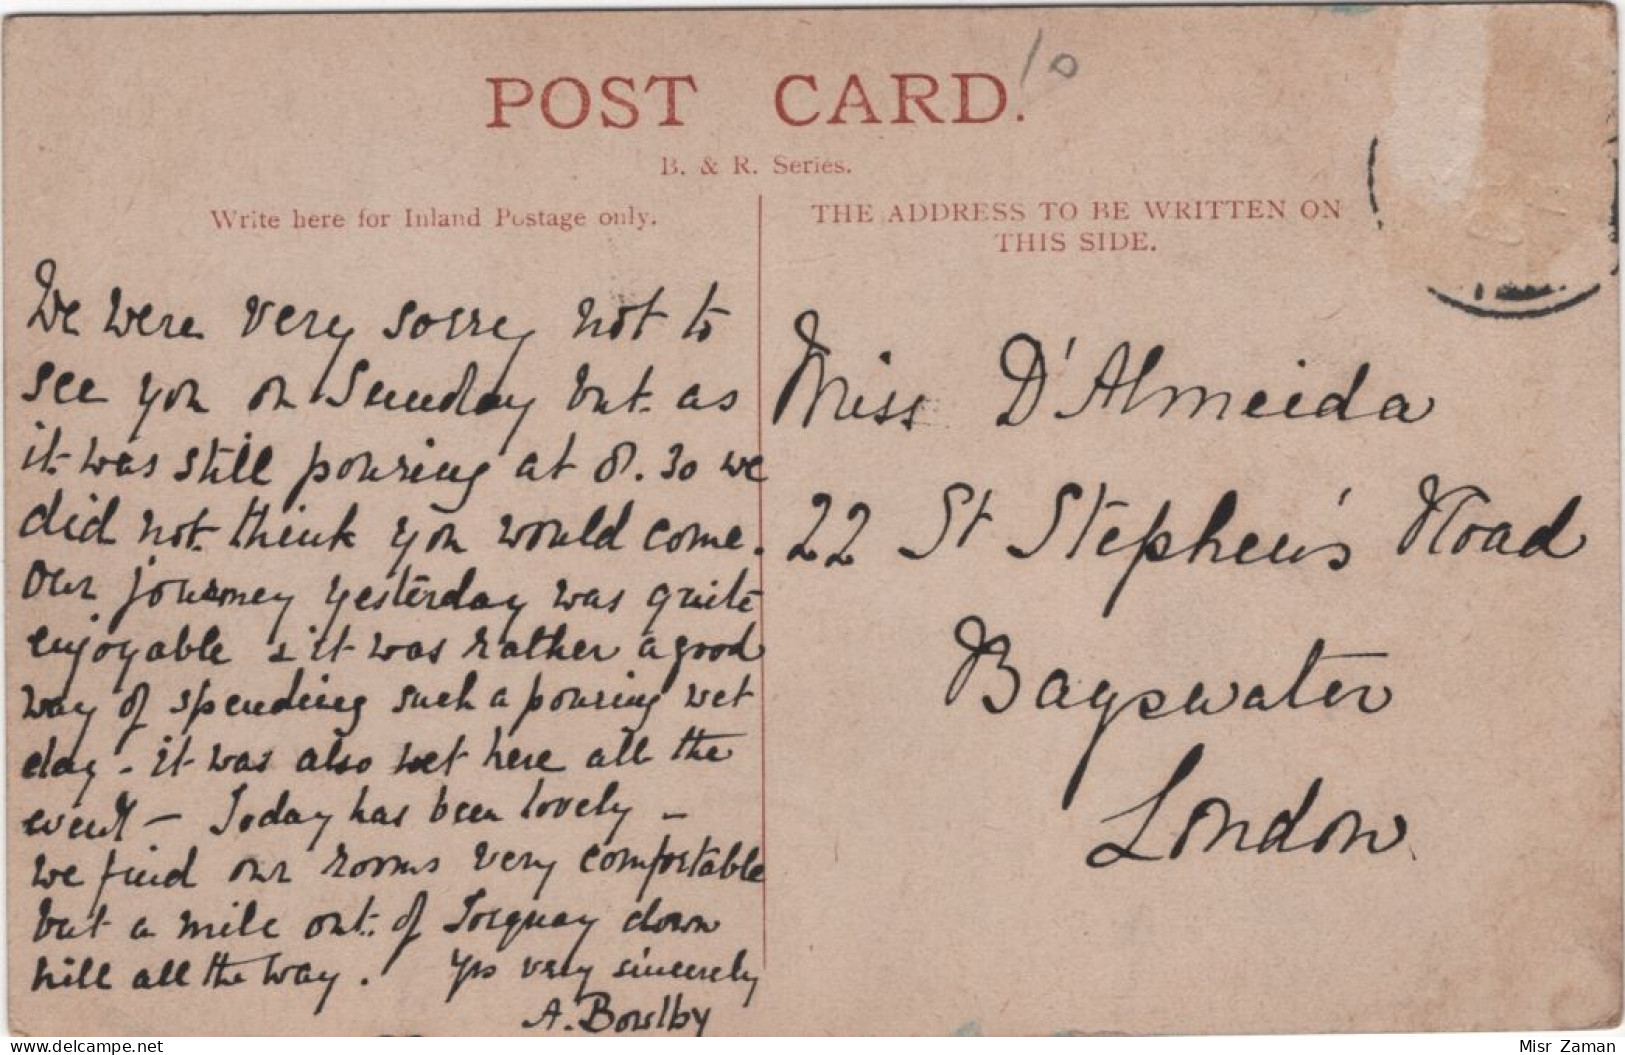 POST CARD.
10
B. & R. Series.
Write here for Inland Postage only.
THE ADDRESS TO BE WRITTEN ON
THIS SIDE.
We were very sorry not to
see you on Sunday but as
it was still pouring at 8.30 we
did not think you would come.
Our journey yesterday was quite
enjoyable & it was rather a good
way of spending such a pouring wet
day - it was also wet here all the
even - Today has been lovely -
we find our rooms very comfortable
but a mile out of Torquay down
hill all the way. Yrs very sincerely
A. Bowlby
Miss D'Almeida
22 St Stephen's Road
Bayswater
London
www.delcampe.net
Misr Zaman